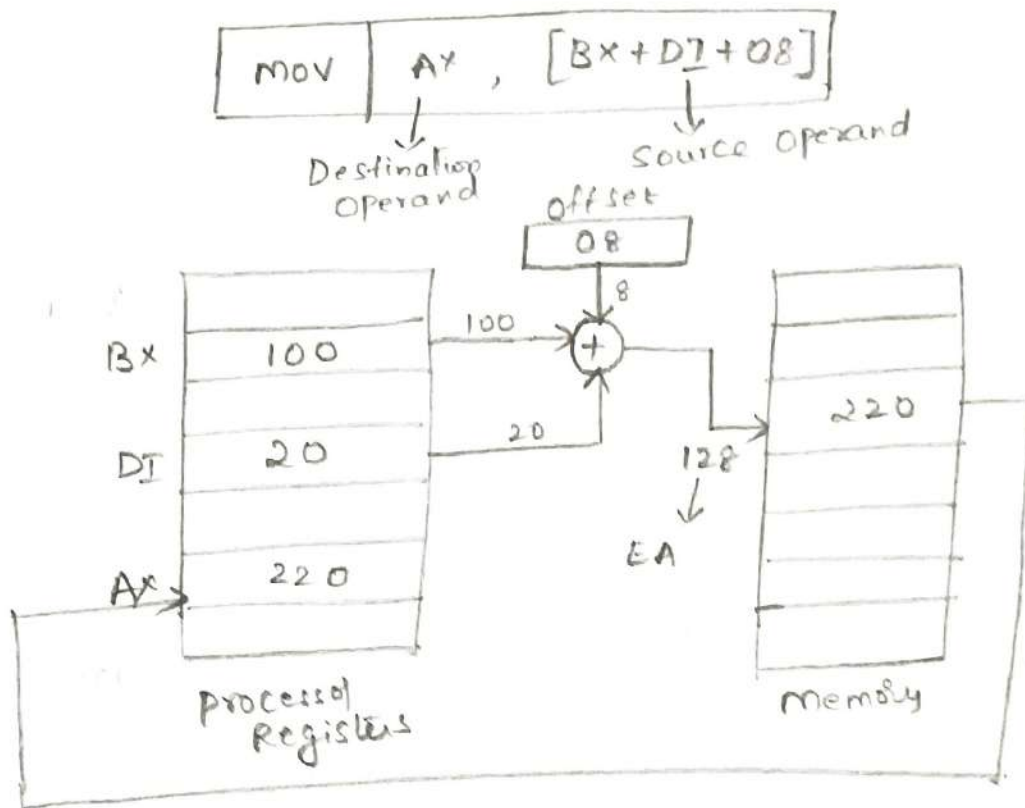 MOV AX , [BX+DI+08]
Destination
operand
Source operand
offset
08
8
BX 100
100
220
DI 20
20
128
EA
AX 220
Processor
Registers
Memory